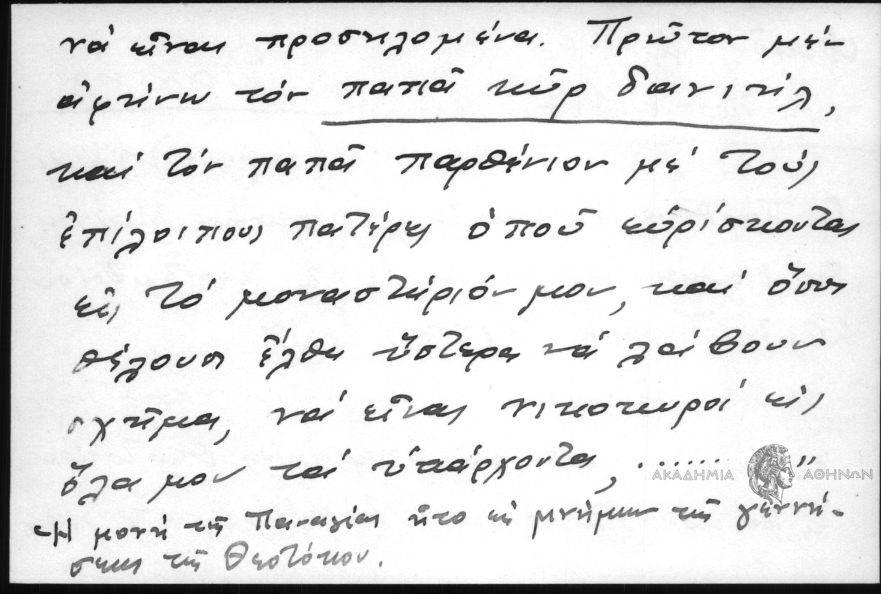 νά εἶναι προσηλομένα. Πρῶτον μέν
ἀφήνω τόν παπᾶ κῦρ δανιήλ,
καί τόν παπᾶ παρθένιον μέ τούς
ἐπίλοιπους πατέρες ὁποῦ εὑρίσκονται
εἰς τό μοναστήριόν μου, καί ὅσοι
θέλουσι ἔλθει ὕστερα νά λάβουν
σχῆμα, νά εἶναι νικοκυροί εἰς
ὅλα μου τά ὑπάρχοντα, ........ "
ΑΚΑΔΗΜΙΑ ΑΘΗΝΩΝ
Ἡ μονή τῆς Παναγίας ἦτο εἰς μνήμην τῆς γεννή-
σεως τῆς Θεοτόκου.